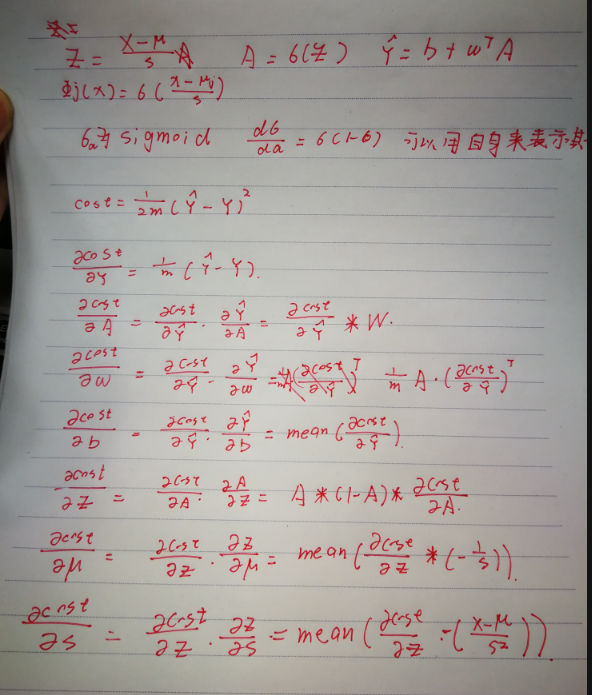 Z = \frac{X-μ}{s} A = б(Z) Ŷ = b + w^T A
Φj(x) = б(\frac{x-μj}{s})
б为 sigmoid \frac{dб}{da} = б(1-б) 可以用自身来表示其
cost = \frac{1}{2m}(Ŷ - Y)^2
\frac{∂cost}{∂Y} = \frac{1}{m}(Ŷ - Y).
\frac{∂cost}{∂A} = \frac{∂cost}{∂Ŷ} · \frac{∂Ŷ}{∂A} = \frac{∂cost}{∂Ŷ} * W.
\frac{∂cost}{∂w} = \frac{∂cost}{∂Ŷ} · \frac{∂Ŷ}{∂w} = \frac{1}{m} A · (\frac{∂cost}{∂Ŷ})^T
\frac{∂cost}{∂b} = \frac{∂cost}{∂Ŷ} · \frac{∂Ŷ}{∂b} = mean(\frac{∂cost}{∂Ŷ}).
\frac{∂cost}{∂Z} = \frac{∂cost}{∂A} · \frac{∂A}{∂Z} = A * (1-A) * \frac{∂cost}{∂A}.
\frac{∂cost}{∂μ} = \frac{∂cost}{∂Z} · \frac{∂Z}{∂μ} = mean(\frac{∂cost}{∂Z} * (-\frac{1}{s})).
\frac{∂cost}{∂s} = \frac{∂cost}{∂Z} · \frac{∂Z}{∂s} = mean(\frac{∂cost}{∂Z} · -(\frac{X-μ}{s^2})).